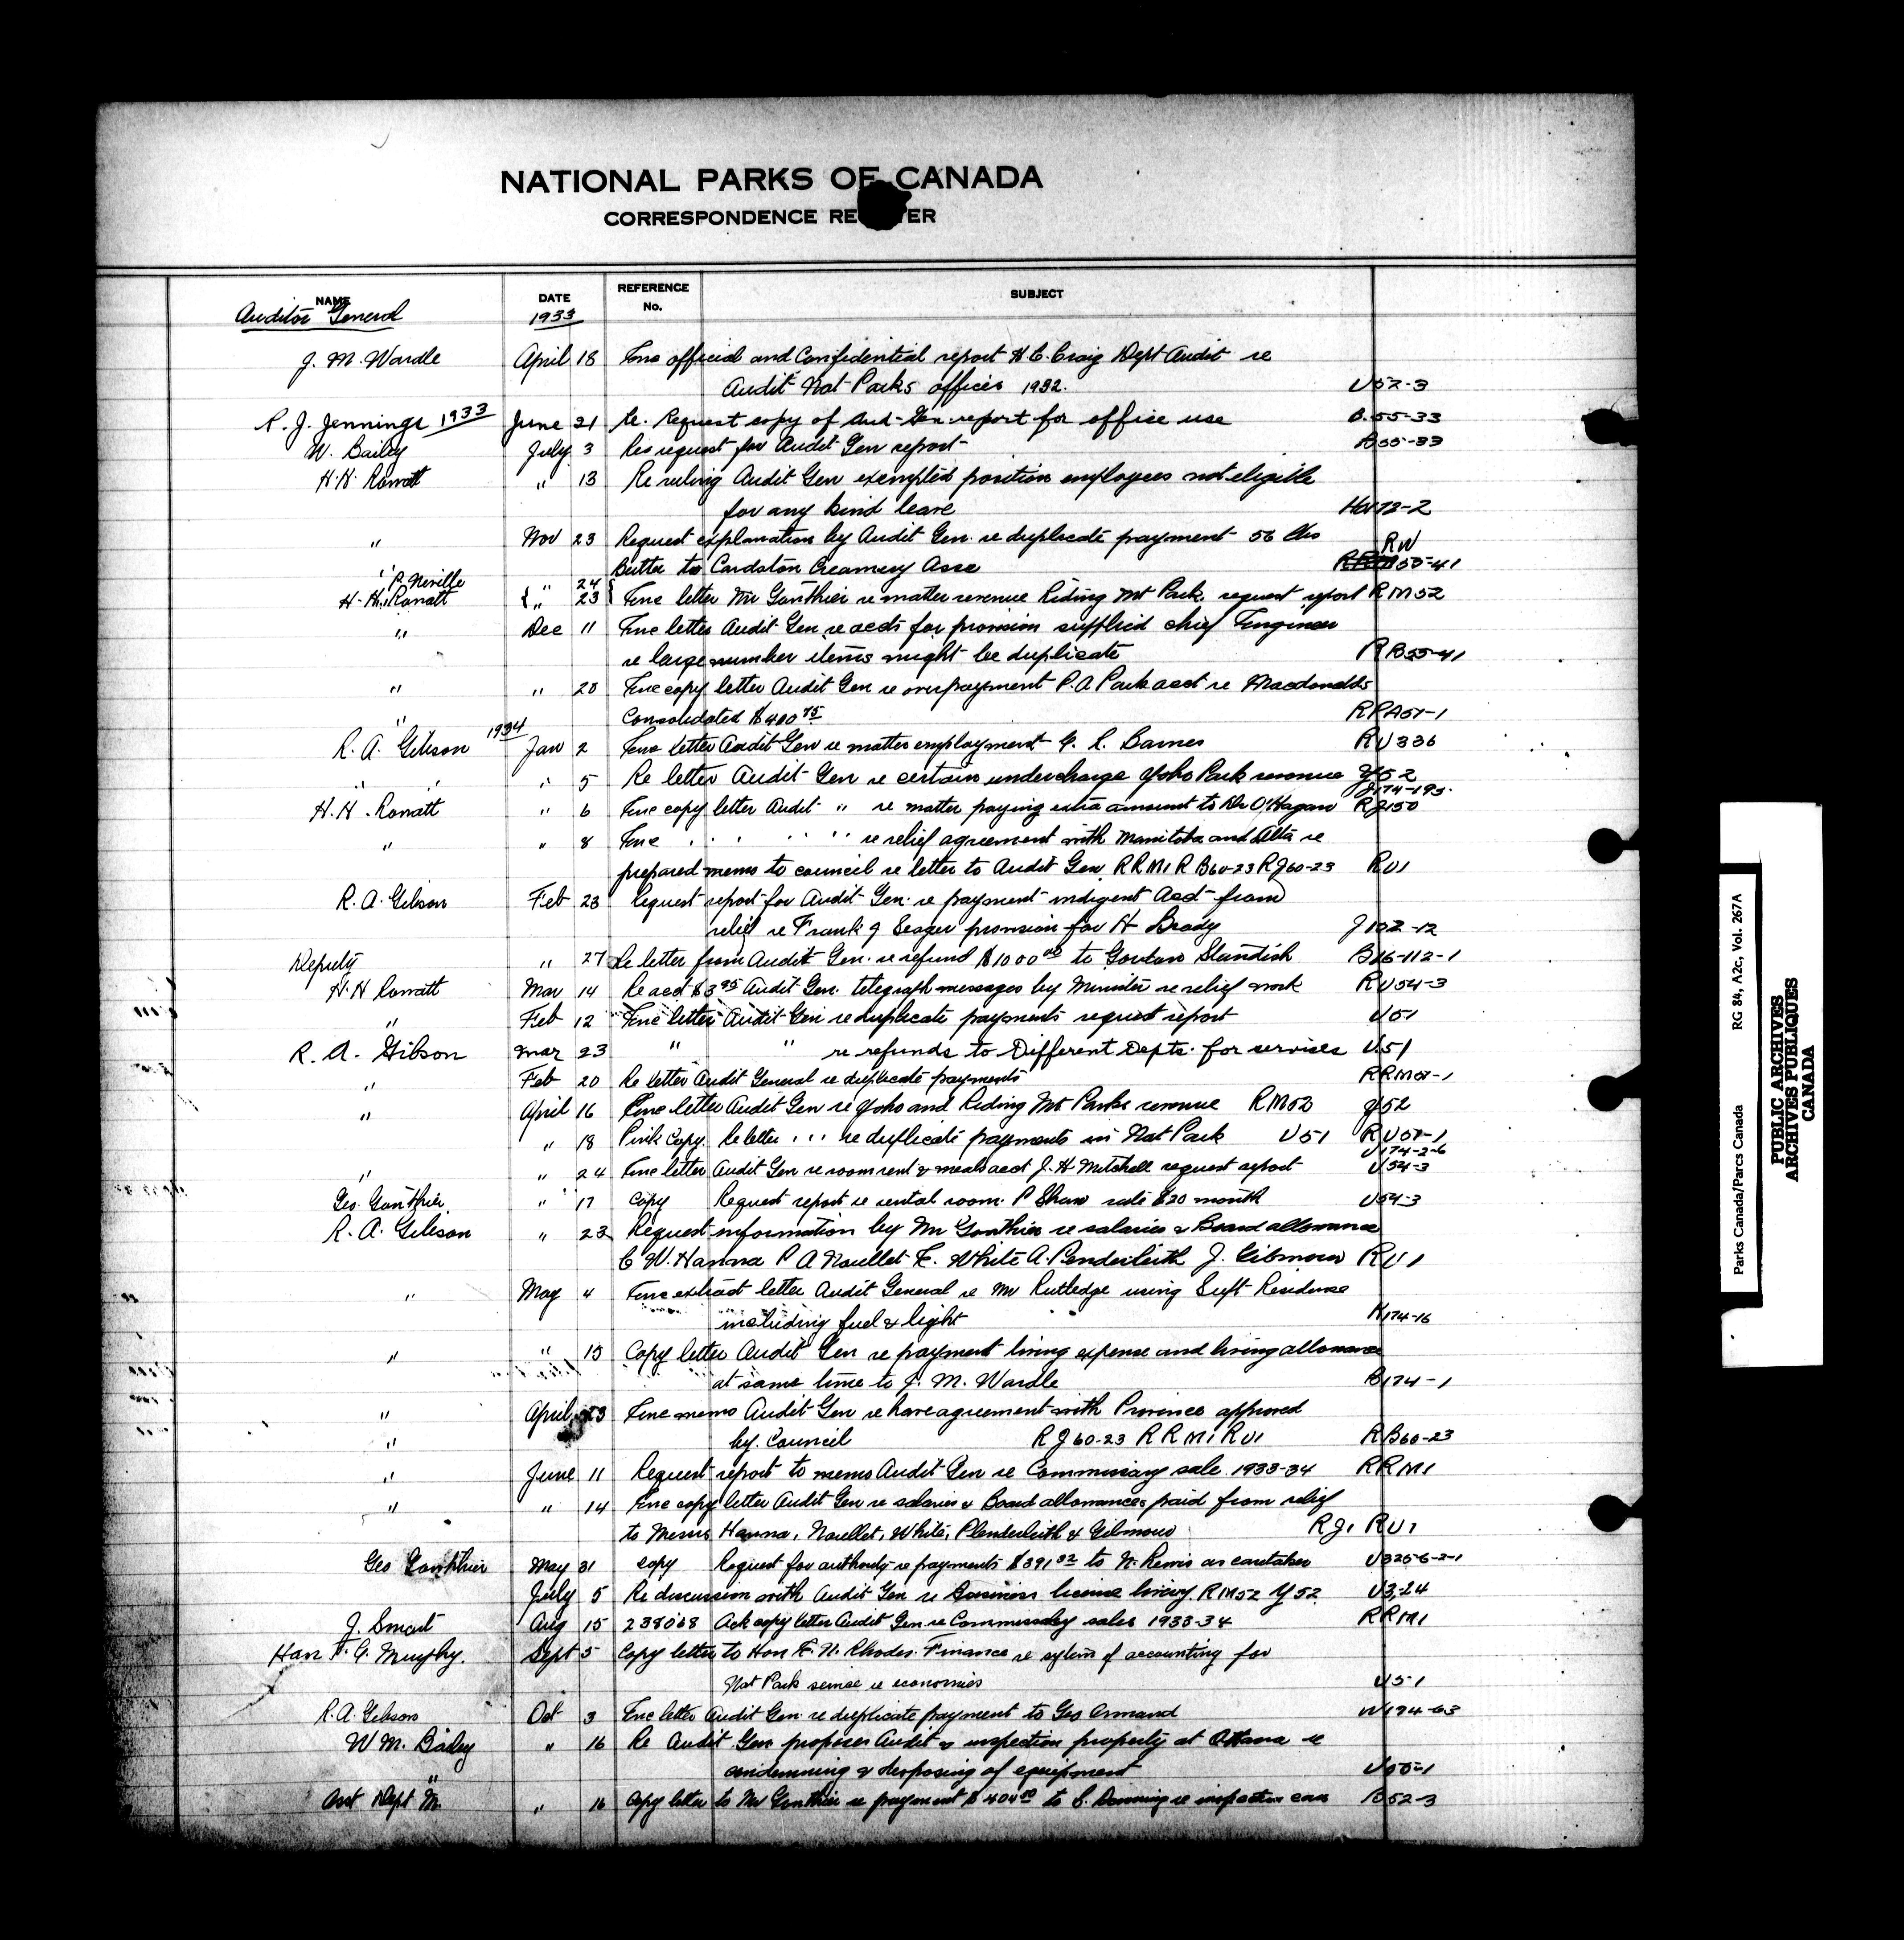 NATIONAL PARKS OF CANADA
CORRESPONDENCE RE TER
NAME DATE REFERENCE No. SUBJECT
Auditor General 1933
J. M. Wardle April 18 Enc official and Confidential report H.C. Craig Dept Audit re
Audit Nat Parks offices 1932. U52-3
R. J. Jennings 1933 June 21 Re. Request copy of Aud-Gen report for office use B.55-33
W. Bailey July 3 Res request for Audit Gen report B55-33
H.H. Rowatt " 13 Re ruling Audit Gen exempted position employees not eligible
for any kind leave HW72-2
" Nov 23 Request explanation by Audit Gen. re duplicate payment 56 lbs RW
Butter to Cardston Creamery Assn 55-41
" R. Neville " 24
H.H. Rowatt " 23 Enc letter Mr Gonthier re matter revenue Riding Mt Park request report RM52
" Dec 11 Enc letter Audit Gen re accts for provision supplied chief Engineer
re large number items might be duplicate RB55-41
" " 20 Enc copy letter Audit Gen re overpayment P.A Park acct re Macdonalds
" Consolidated $400 75 RPA51-1
R. A. Gibson 1934 Jan 2 Enc letter Audit Gen re matter employment G. L. Barnes RU336
" " " 5 Re letter Audit Gen re certain undercharge Yoho Park revenue Y52
J174-195.
H.H. Rowatt " 6 Enc copy letter Audit " re matter paying extra amount to Dr O'Hagan RJ150
" " 8 Enc " " " " re relief agreement with Manitoba and Alta re
prepared memo to council re letter to Audit Gen RRM1 RB60-23 RJ60-23 RU1
R. A. Gibson Feb 23 Request report for Audit Gen. re payment indigent Acct from
relief re Frank J Seager provision for H Brady J102-12
Deputy " 27 Re letter from Audit Gen. re refund $1000 00 to Gordon Standish B16-112-1
H.H Rowatt Mar 14 Re acct $3 95 Audit Gen. telegraph messages by Minister re relief work RU54-3
" Feb 12 Enc letter Audit Gen re duplicate payments request report U51
R. A. Gibson Mar 23 " " re refunds to Different Depts. for services U.51
" Feb 20 Re letter Audit General re duplicate payments RRM51-1
" April 16 Enc letter Audit Gen re Yoho and Riding Mt Parks revenue RM52 Y52
" 18 Pink Copy. Re letter " " " re duplicate payments in Nat Park U51 RU51-1
U174-2-6
" " 24 Enc letter Audit Gen re room rent & meals acct J. H Mitchell request report U54-3
Geo. Gonthier " 17 Copy Request report re rental room. P Shaw rate $20 month U54-3
R. A. Gibson " 23 Request information by Mr Gonthier re salaries & Board allowance
C W. Hanna P A Noullet F. White A. Penderleith J. Gibmour RU1
" May 4 Enc extract letter Audit General re Mr Rutledge using Supt Residence
including fuel & light K174-16
" " 15 Copy letter Audit Gen re payment living expense and living allowance
at same time to J. M. Wardle B174-1
" April 23 Enc memo Audit Gen re have agreement with Province approved
" by. Council RJ60-23 RRM1 RU1 RB60-23
" June 11 Request report to memo Audit Gen re Commissary sale 1933-34 RRM1
" " 14 Enc copy letter Audit Gen re salaries & Board allowances paid from relief
to Messrs Hanna, Noullet, White, Plenderleith & Gilmour RJ1 RU1
Geo Gonthier May 31 copy Request for authority re payments $391 32 to N. Lewis as caretaker U325-6-2-1
July 5 Re discussion with Audit Gen re Business license livery. RM52 Y52 U3-24
J. Smart Aug 15 238068 Ack copy letter Audit Gen. re Commissary sales 1933-34 RRM1
Hon T. G. Murphy. Sept 5 Copy letter to Hon E. N. Rhodes. Finance re system of accounting for
Nat Park service re economies U5-1
R. A. Gibson Oct 3 Enc letter Audit Gen re duplicate payment to Geo Armand W194-63
W M. Bailey " 16 Re Audit Gen proposes Audit & inspection property at Ottawa re
" condemning & disposing of equipment U55-1
Asst Dept M. " 16 Copy letter to Mr Gonthier re payment $404 00 to C. Dunning re inspection cars B52-3
Parks Canada/Parcs Canada RG 84, A2c, Vol. 267A
PUBLIC ARCHIVES
ARCHIVES PUBLIQUES
CANADA